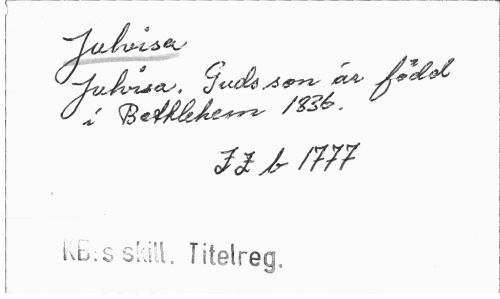 Julvisa
Julvisa. Guds son är född
i Bethlehem 1836.
ZZ b 1777
KB:s skill. Titelreg.